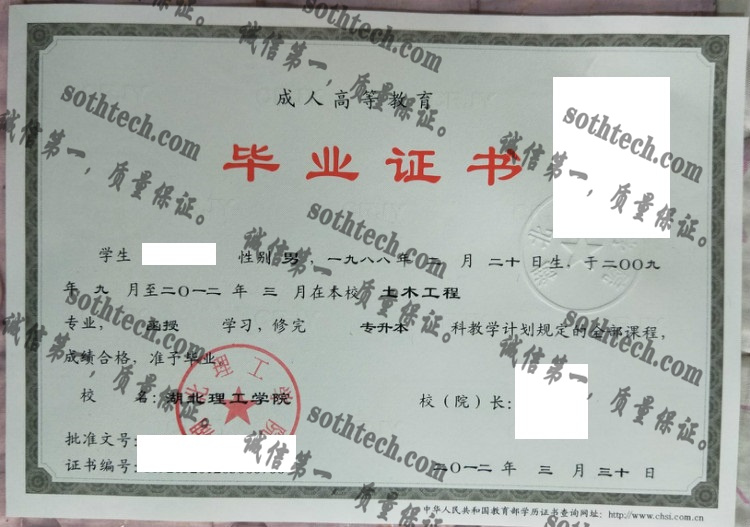 成人高等教育
毕业证书
学生 性别 男，一九八八年 二 月 二十日生，于二〇〇九
年 九 月至二〇一二 年 三 月在本校 土木工程
专业， 函授 学习，修完 专升本 科教学计划规定的全部课程，
成绩合格，准予毕业。
校 名：湖北理工学院 校（院）长：
批准文号：
证书编号：
二〇一二 年 三 月 三十日
中华人民共和国教育部学历证书查询网址：http://www.chsi.com.cn
湖北理工学院
sothtech.com
诚信第一，质量保证。
sothtech.com
诚信第一，质量保证。
sothtech.com
诚信第一，质量保证。
sothtech.com
诚信第一，质量保证。
sothtech.com
诚信第一，质量保证。
sothtech.com
诚信第一，质量保证。
sothtech.com
诚信第一，质量保证。